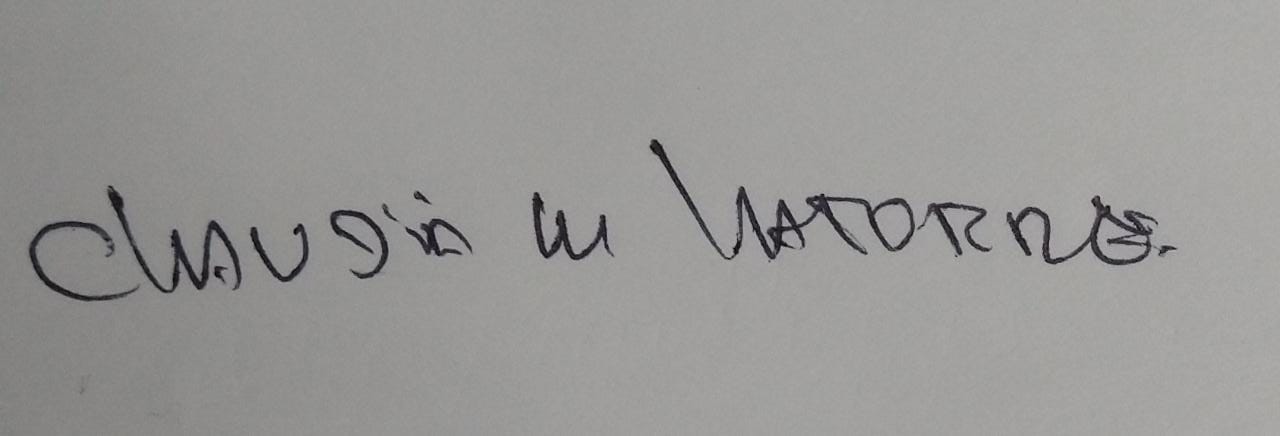 CLAUDIA M LATORRE